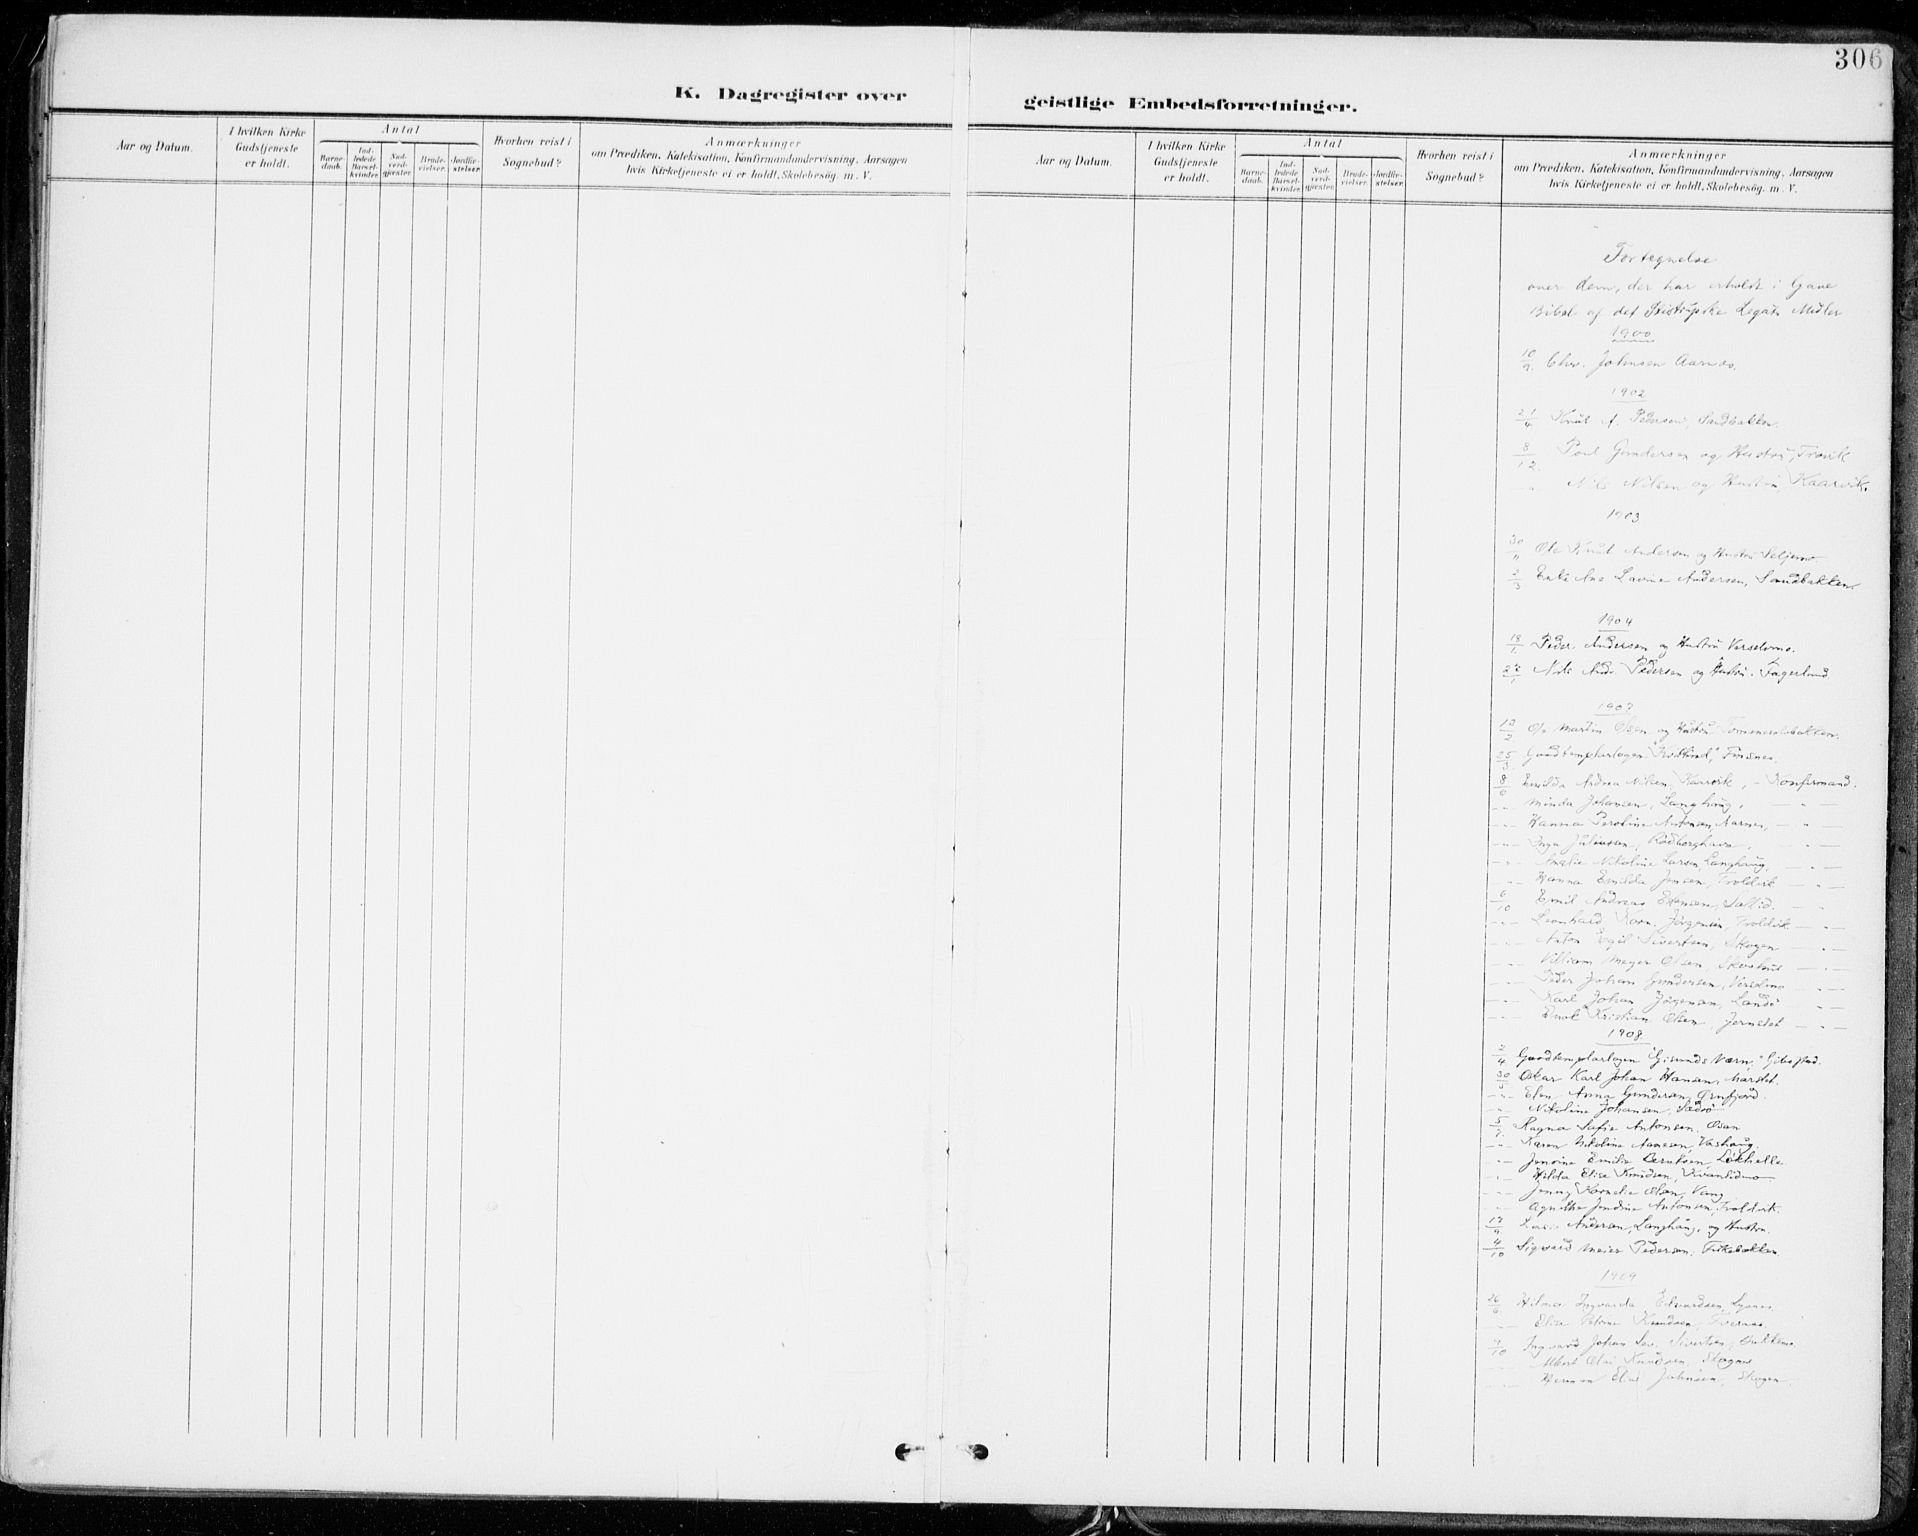 306
K. Dagregister over
geistlige Embedsforretninger.
Aar og Datum.
I hvilken Kirke
Gudstjeneste
er holdt.
Antal
Barne-
daab.
Ind-
ledede
Barsel-
kvinder.
Nad-
verd-
gjæster.
Brude-
vielser.
Jordfæ-
stelser.
Hvorhen reist i
Sognebud?
Anmærkninger
om Prædiken, Katekisation, Konfirmandundervisning, Aarsagen
hvis Kirketjeneste ei er holdt, Skolebesøg, m. V.
Aar og Datum.
I hvilken Kirke
Gudstjeneste
er holdt.
Antal
Barne-
daab.
Ind-
ledede
Barsel-
kvinder.
Nad-
verd-
gjæster.
Brude-
vielser.
Jordfæ-
stelser.
Hvorhen reist i
Sognebud?
Anmærkninger
om Prædiken, Katekisation, Konfirmandundervisning, Aarsagen
hvis Kirketjeneste ei er holdt, Skolebesøg, m. V.
Fortegnelse
over dem, der har erholdt i Gave
Bibel af det Legats Midler
1900
10/2. Chr. Johnsen Aarnes.
1902
21/4 Knut A. Pedersen, Sandbakken.
8/12. Poul Gundersen og Hustru,
-"- Nils Nilsen og Hustru, Kaarvik.
1903
30/ Ole Knut Andersen og Hustru
2/3 Enke Ane Lavine Andersen, Sandbakken.
1904
18/1. Peder Andersen og Hustru
22/1 Nils Andr. Pedersen og Hustru. Fagerlund
1907
12/2 Ole Martin Olsen og Hustru
25/3 Goodtemplarlogen Finsnes.
8/6 Emilda Andrea Nilsen Kaarvik, - Konfirmand.
-"- Minda Johansen, Langhaug, -"-
-"- Hanna Peroline Antonsen, Aarnes, -"-
-"- Inga Juliussen, Rödberghavn, -"-
-"- Amalie Nikoline Larsen, Langhaug, -"-
-"- Hanna Emilda Jensen, Troldvik -"-
6/10 Emil Andreas -"-
-"- Leonhard Jörgensen, Troldvik -"-
-"- Anton Egil Sivertsen, Skogen -"-
-"- William Meyer Olsen, -"-
-"- Peder Johan Gundersen, -"-
-"- Karl Johan Jörgensen, -"-
-"- Kristian Olsen, -"-
1908
2/4 Goodtemplarlogen "Gisunds Værn," Gibostad.
30/5 Oskar Karl Johan Hansen,
-"- Elen Anna Gundersen, Örnfjord.
-"- Nikoline Johansen,
5/7. Ragna Sofie Antonsen.
-"- Karen Nikoline
-"- Jensine Emilie
-"- Hilda Elise Knudsen,
-"- Jenny Kornelie Olsen, Vang
-"- Agnethe Jendine Antonsen, Troldvik.
Andersen, Langhaug, og Hustru
4/10 Sigvald Meier Pedersen.
1909
26/6 Ingvarda Edvardsen, Lysnes.
-"- Elise Petrine Knudsen,
4/10 Ingvard Johan Sivertsen,
-"- Albert Knudsen,
-"- Herman Elias Johnsen, Skogen.